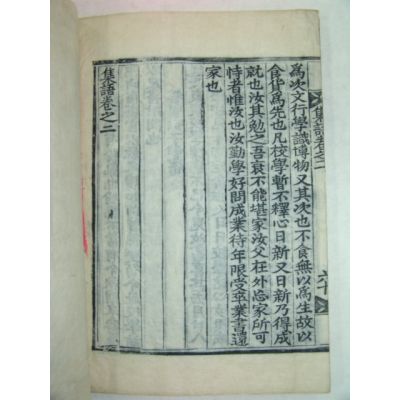 為次文行學識博物又其次也不食無以為生故以
食貨為先也凡校學暫不釋心日新又日新乃得成
就也汝其勉之吾衰不能堪家汝父在外忘家所可
恃者惟汝也汝勤學好問成業待年限受卒業書還
家也
集語卷之二
集語卷之二